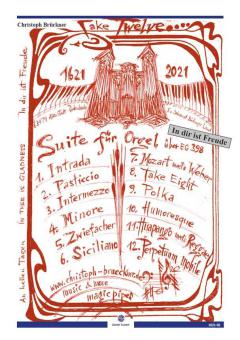 Christoph Brückner
Take Twelve....
1621 2021
In dir ist Freude
Suite für Orgel
über EG 398
In dir ist Freude
IN THEE IS GLADNESS
An hellen Tagen
1. Intrada
2. Pasticcio
3. Intermezzo
4. Minore
5. Zwiefacher
6. Siciliano
7. Mozart meets Weber
8. Take Eight
9. Polka
10. Humoresque
11. Huapango meets Reggae
12. Perpetuum mobile
www.christoph-brueckner.de
music & more
magic pipes